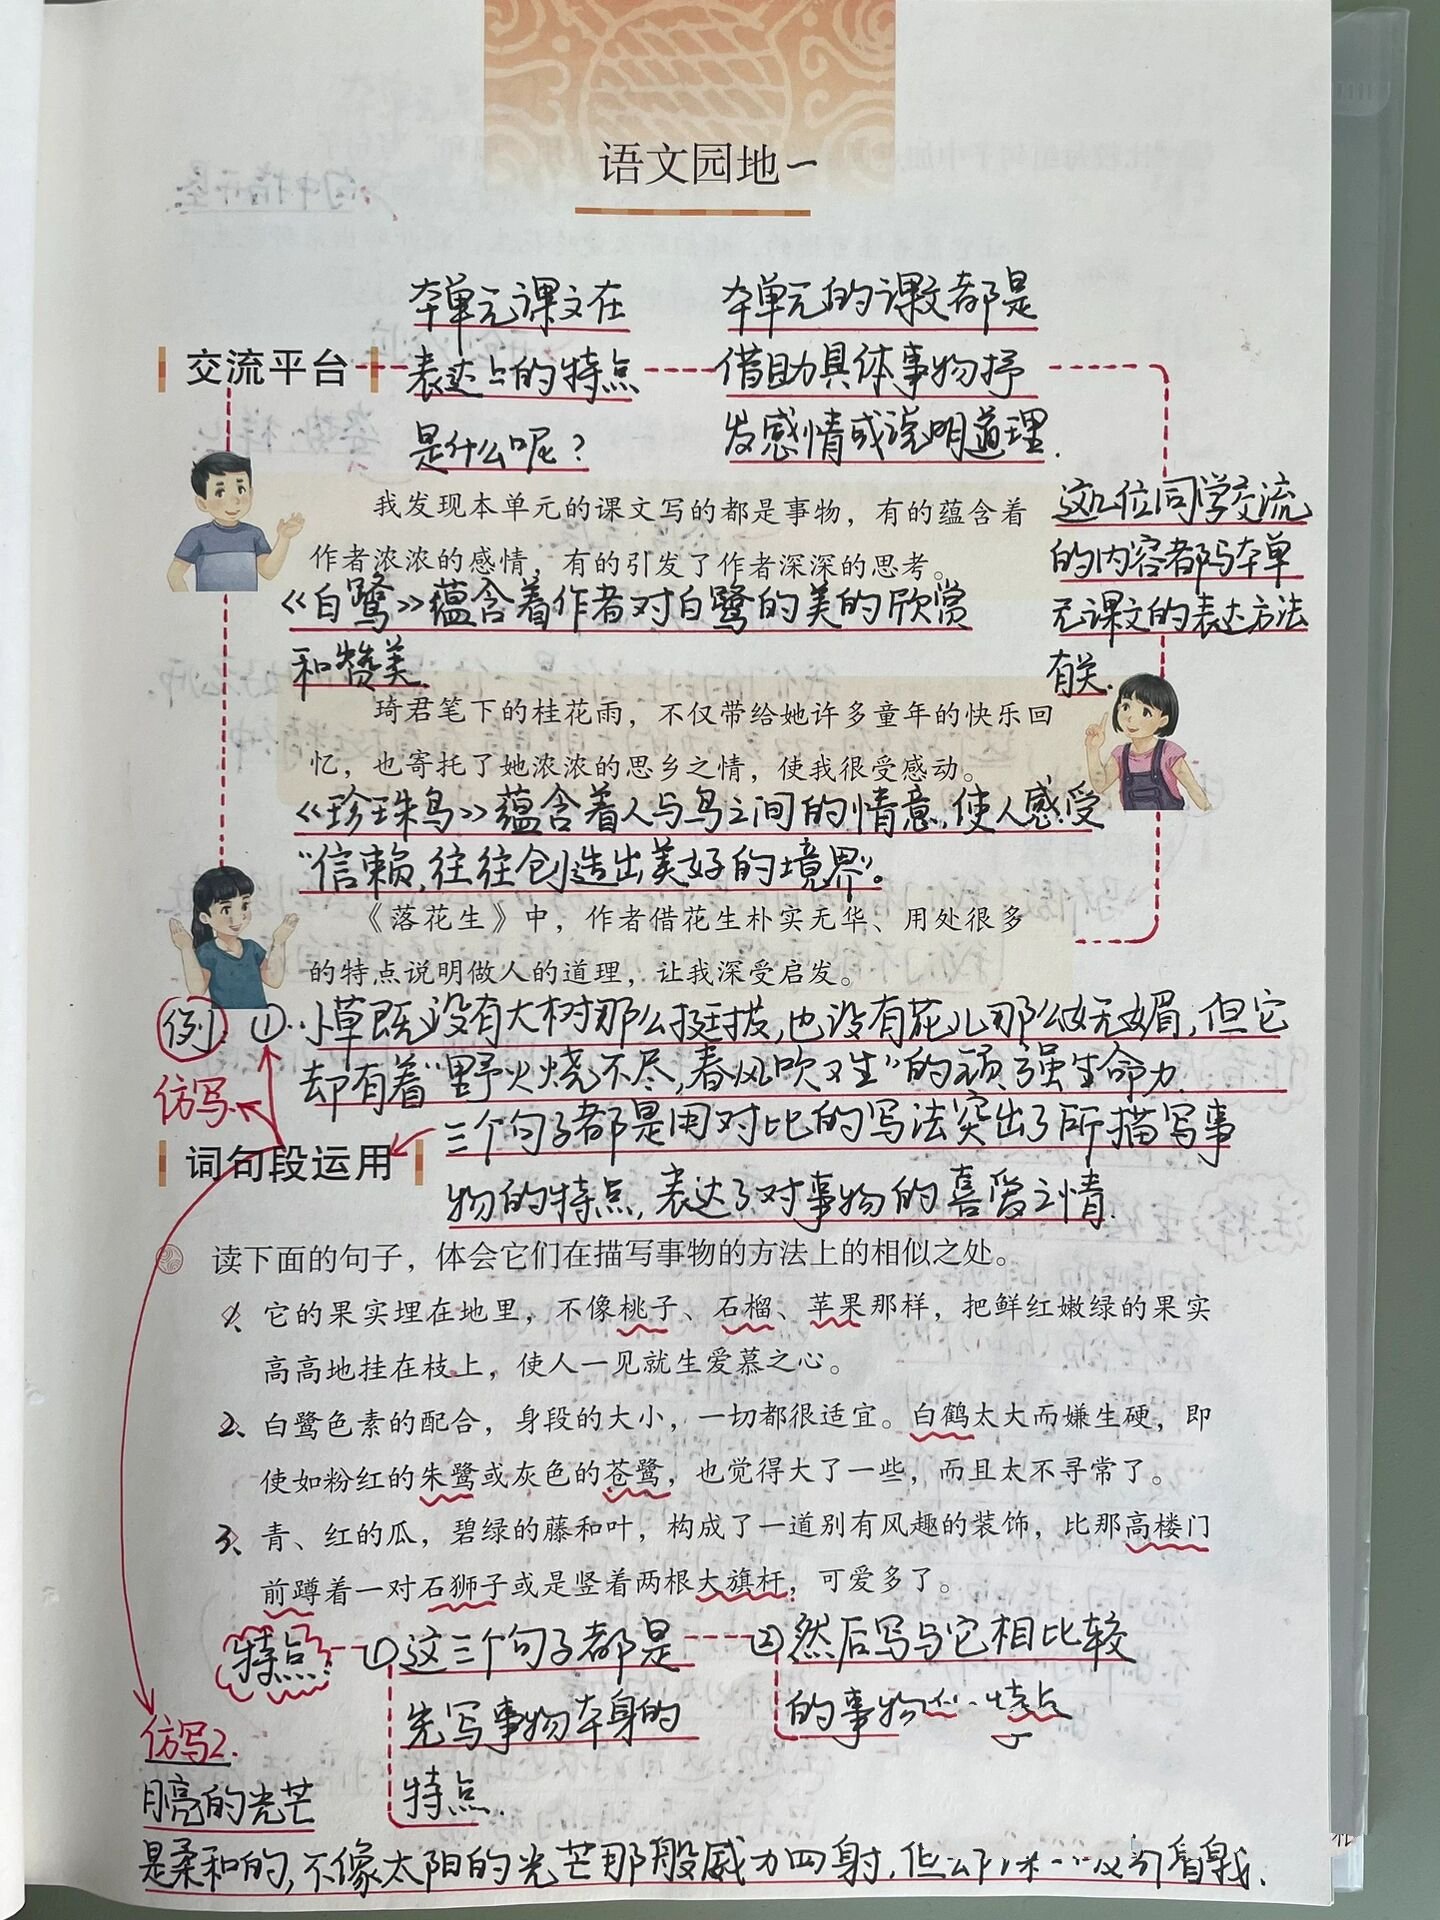 语文园地一
本单元课文在
表达上的特点
是什么呢？
本单元的课文都是
借助具体事物抒
发感情或说明道理.
交流平台
我发现本单元的课文写的都是事物，有的蕴含着
作者浓浓的感情，有的引发了作者深深的思考。
这几位同学交流
的内容都与本单
元课文的表达方法
有关.
《白鹭》蕴含着作者对白鹭的美的欣赏
和赞美.
琦君笔下的桂花雨，不仅带给她许多童年的快乐回
忆，也寄托了她浓浓的思乡之情，使我很受感动。
《珍珠鸟》蕴含着人与鸟之间的情意，使人感受
“信赖，往往创造出美好的境界”。
《落花生》中，作者借花生朴实无华、用处很多
的特点说明做人的道理，让我深受启发。
例 ①.小草既没有大树那么挺拔，也没有花儿那么妩媚，但它
却有着“野火烧不尽，春风吹又生”的顽强生命力.
仿写.
三个句子都是用对比的写法突出了所描写事
物的特点，表达了对事物的喜爱之情.
词句段运用
读下面的句子，体会它们在描写事物的方法上的相似之处。
1、它的果实埋在地里，不像桃子、石榴、苹果那样，把鲜红嫩绿的果实
高高地挂在枝上，使人一见就生爱慕之心。
2、白鹭色素的配合，身段的大小，一切都很适宜。白鹤太大而嫌生硬，即
使如粉红的朱鹭或灰色的苍鹭，也觉得大了一些，而且太不寻常了。
3、青、红的瓜，碧绿的藤和叶，构成了一道别有风趣的装饰，比那高楼门
前蹲着一对石狮子或是竖着两根大旗杆，可爱多了。
特点：
①这三个句子都是
先写事物本身的
特点.
②然后写与它相比较
的事物 特点
仿写2.
月亮的光芒
是柔和的，不像太阳的光芒那般威力四射，但